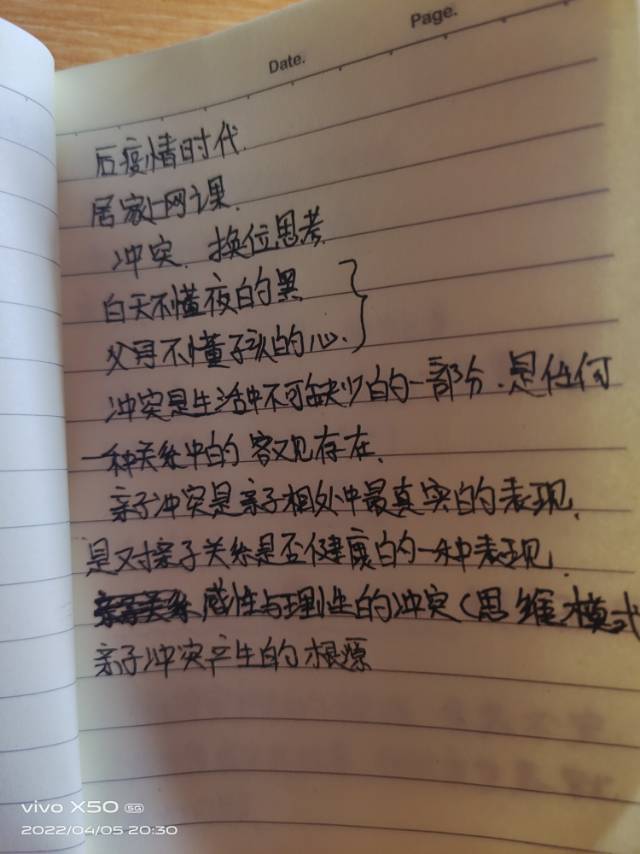 Date.
Page.
后疫情时代.
居家上网课.
冲突. 换位思考.
白天不懂夜的黑
父母不懂子孩的心.
冲突是生活中不可缺少的一部分.是任何
一种关系中的客观存在.
亲子冲突是亲子相处中最真实的表现.
是对亲子关系是否健康的一种表现.
感性与理性的冲突(思维模式
亲子冲突产生的根源
vivo X50 5G
2022/04/05 20:30